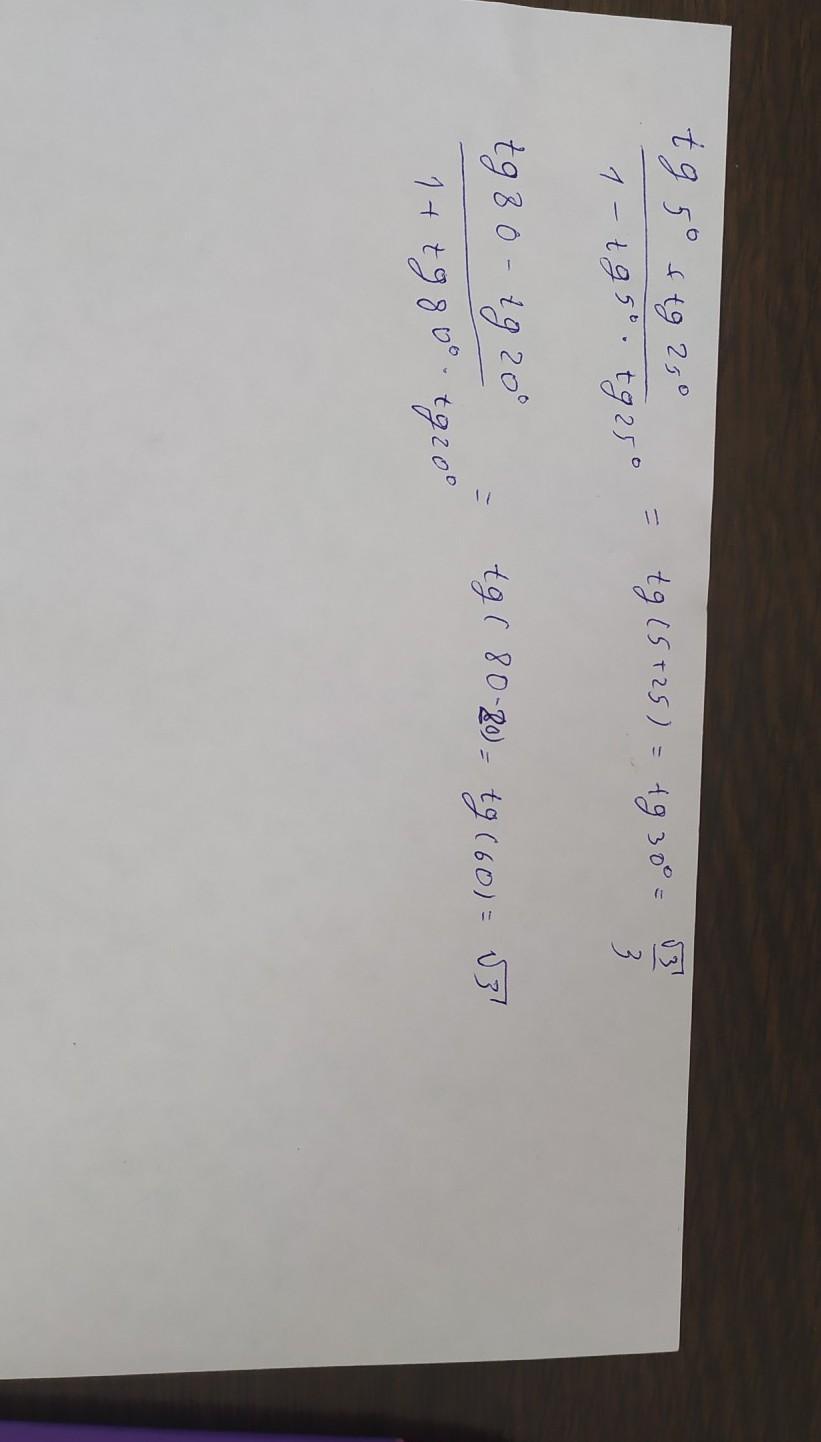 tg 5° + tg 25°
1 - tg 5° · tg 25° = tg (5+25) = tg 30° = √3/3
tg 80 - tg 20°
1 + tg 80° · tg 20° = tg (80-20) = tg (60) = √3